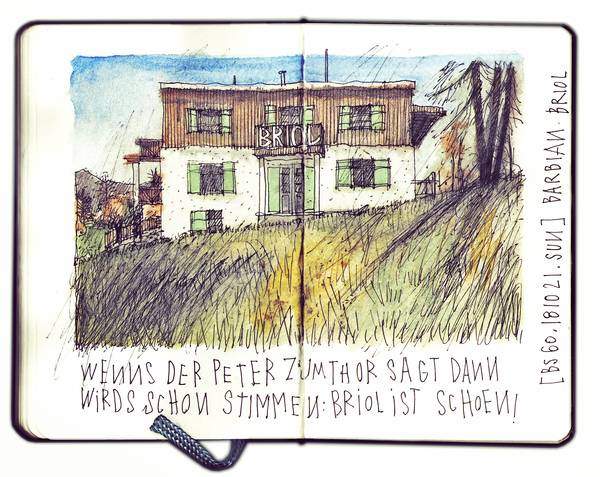 BRIOL
WENNS DER PETER ZUMTHOR SAGT DANN
WIRDS SCHON STIMMEN: BRIOL IST SCHOEN!
[BS60.181021.SUN] BARBIAN. BRIOL